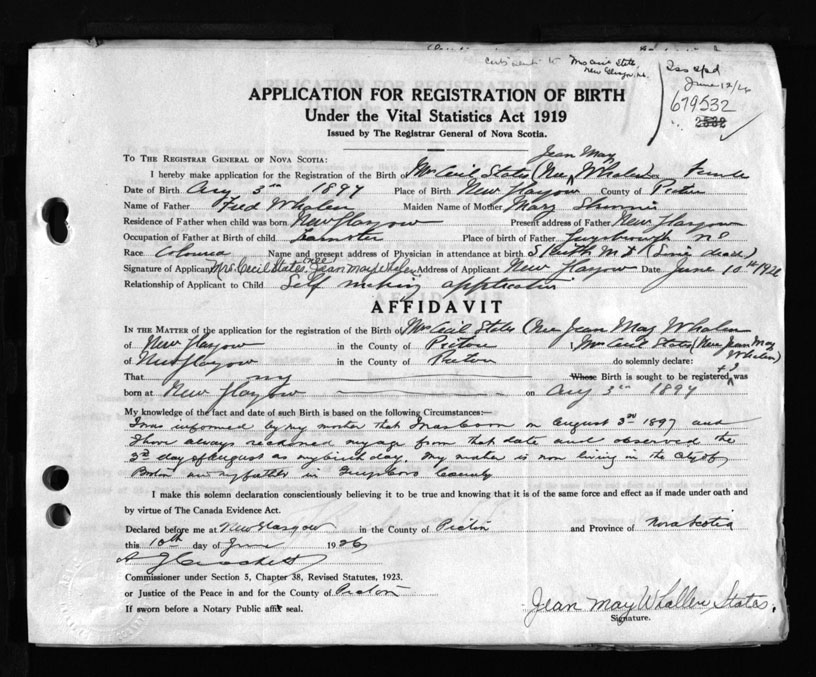 Mrs Cecil States
New Glasgow, N.S.
June 12/26
679532
2532
APPLICATION FOR REGISTRATION OF BIRTH
Under the Vital Statistics Act 1919
Issued by The Registrar General of Nova Scotia.
TO THE REGISTRAR GENERAL OF NOVA SCOTIA:
Jean May
I hereby make application for the Registration of the Birth of Mrs Cecil States (Nee Whalen) Sex Female
Date of Birth Aug 3rd 1897 Place of Birth New Glasgow County of Pictou
Name of Father Fred Whalen Maiden Name of Mother Mary
Residence of Father when child was born New Glasgow Present address of Father New Glasgow
Occupation of Father at Birth of child Teamster Place of birth of Father Guysborough NS
Race Coloured Name and present address of Physician in attendance at birth S Keith M D (Since dead)
Signature of Applicant Mrs. Cecil States (nee) Jean May Whalen Address of Applicant New Glasgow Date June 10th 1926
Relationship of Applicant to Child Self making application
AFFIDAVIT
IN THE MATTER of the application for the registration of the Birth of Mrs Cecil States (Nee Jean May Whalen
of New Glasgow in the County of Pictou I, Mrs Cecil States (Nee Jean May Whalen)
of New Glasgow in the County of Pictou do solemnly declare:
That my Whose Birth is sought to be registered + I was
born at New Glasgow on Aug 3rd 1897
My knowledge of the fact and date of such Birth is based on the following Circumstances:—
I was informed by my mother that I was born on August 3rd 1897 and
I have always reckoned my age from that date and observed the
3rd day of August as my birthday. My mother is now living in the City of
Boston and my father in Guysboro County
I make this solemn declaration conscientiously believing it to be true and knowing that it is of the same force and effect as if made under oath and
by virtue of The Canada Evidence Act.
Declared before me at New Glasgow in the County of Pictou and Province of Nova Scotia
this 10th day of June 1926
Commissioner under Section 5, Chapter 38, Revised Statutes, 1923.
or Justice of the Peace in and for the County of Pictou
If sworn before a Notary Public affix seal.
Jean May Whallen States.
Signature.